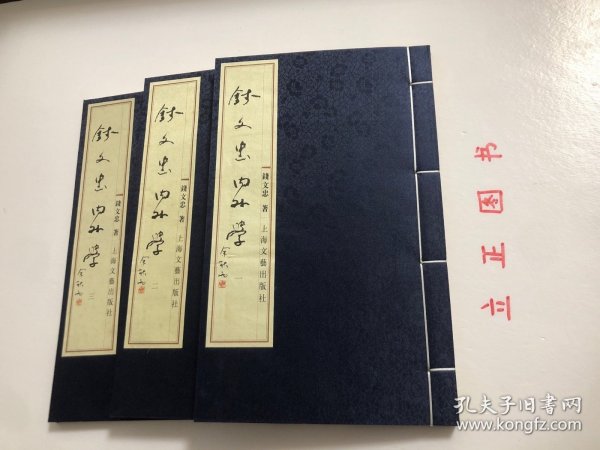 錢文忠内外學
余秋雨
三
錢文忠 著
上海文藝出版社
錢文忠内外學
余秋雨
二
錢文忠 著
上海文藝出版社
錢文忠内外學
余秋雨
一
錢文忠 著
上海文藝出版社
立正图书
孔夫子旧书网
www.kongfz.com